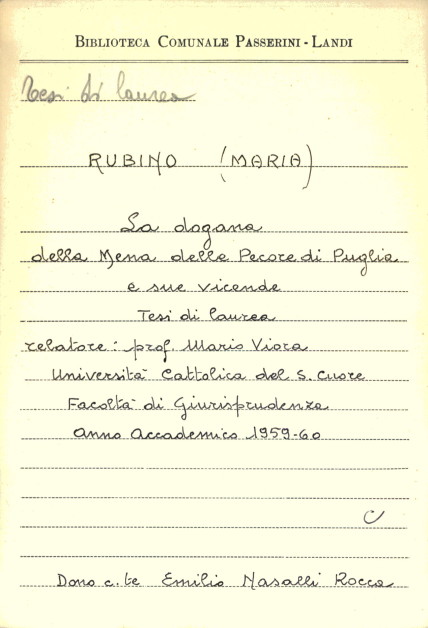 BIBLIOTECA COMUNALE PASSERINI - LANDI
Tesi di laurea
RUBINO (MARIA)
La dogana
della Mena delle Pecore di Puglia
e sue vicende
Tesi di laurea
relatore: prof. Mario Viora
Università Cattolica del S. Cuore
Facoltà di Giurisprudenza
Anno Accademico 1959-60
C
Dono c.te Emilio Nasalli Rocca